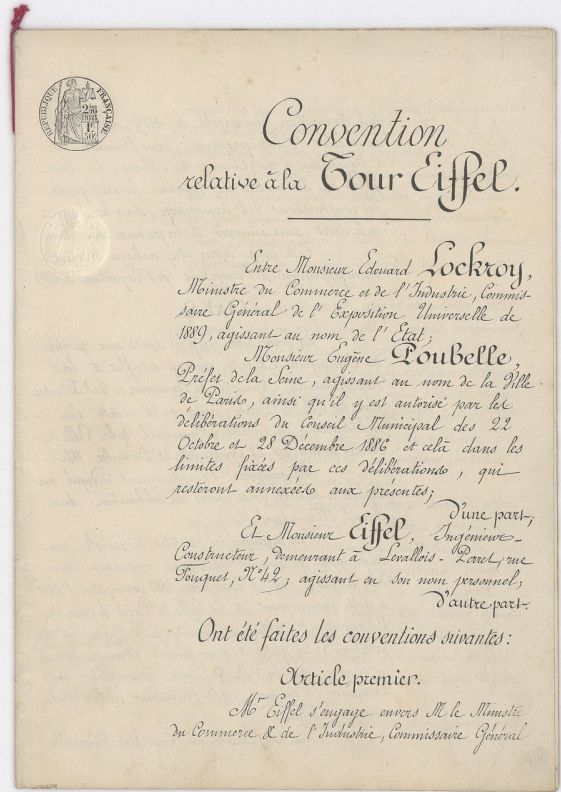 RÉPUBLIQUE FRANÇAISE
Convention
relative à la Tour Eiffel.
Entre Monsieur Edouard Lockroy,
Ministre du Commerce et de l'Industrie, Commis-
saire Général de l'Exposition Universelle de
1889, agissant au nom de l'Etat;
Monsieur Eugène Poubelle,
Préfet de la Seine, agissant au nom de la Ville
de Paris, ainsi qu'il y est autorisé par les
délibérations du Conseil Municipal des 22
Octobre et 28 Décembre 1886 et celà dans les
limites fixées par ces délibérations, qui
resteront annexées aux présentes;
d'une part;
Et Monsieur Eiffel, Ingénieur-
Constructeur, demeurant à Levallois-Perret, rue
Fouquet, N°42; agissant en son nom personnel;
d'autre part.
Ont été faites les conventions suivantes:
Article premier.
Mr Eiffel s'engage envers M le Ministre
du Commerce & de l'Industrie, Commissaire Général